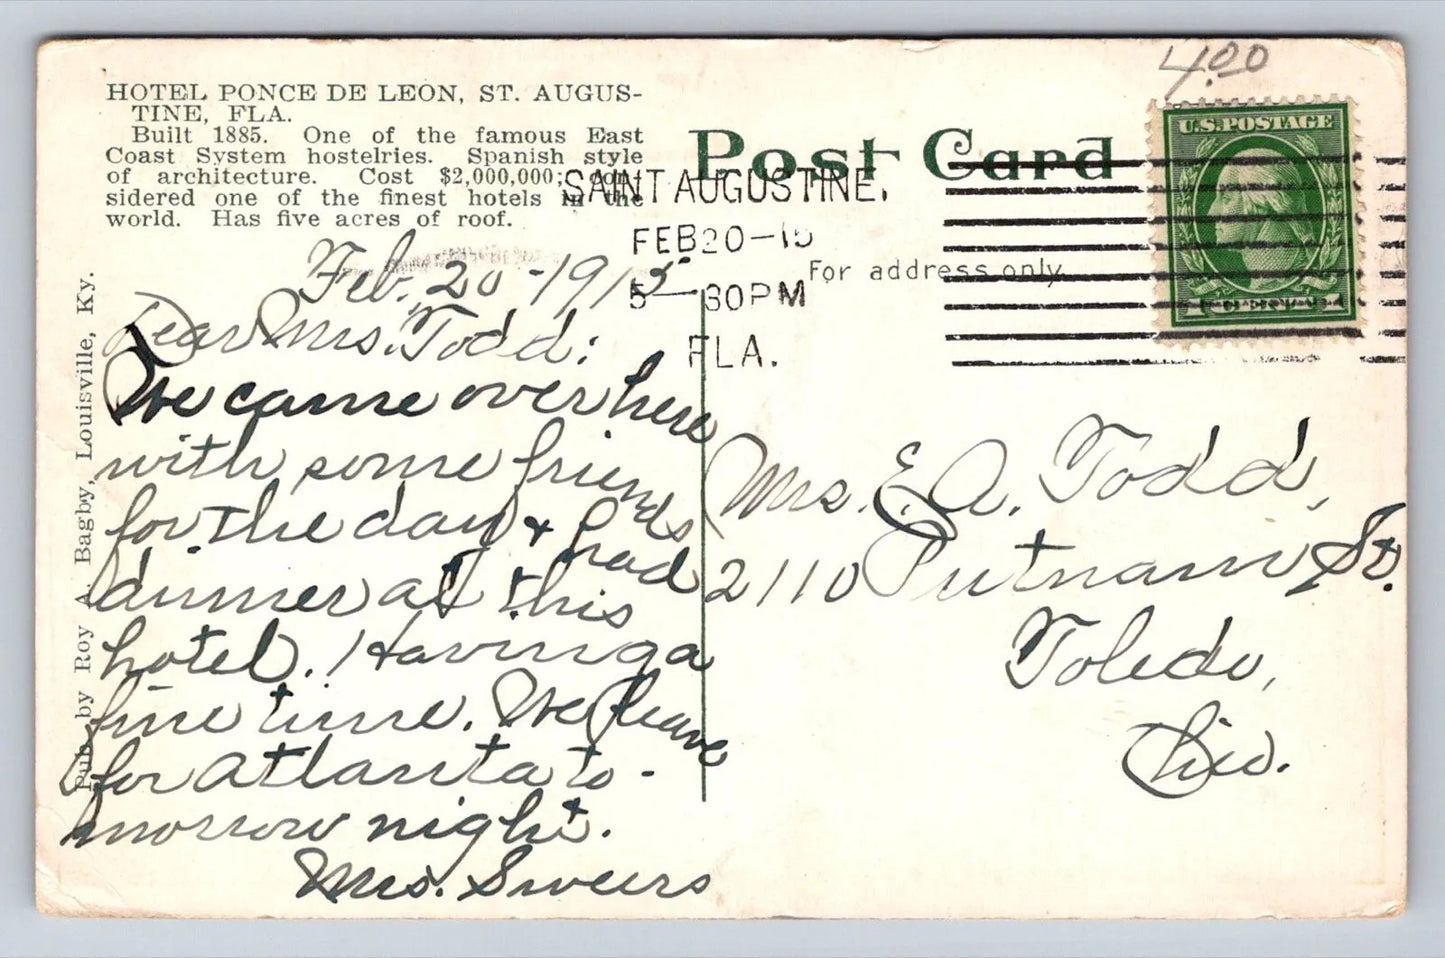 4.00
HOTEL PONCE DE LEON, ST. AUGUS-
TINE, FLA.
Built 1885. One of the famous East
Coast System hostelries. Spanish style
of architecture. Cost $2,000,000; con-
sidered one of the finest hotels in the
world. Has five acres of roof.
Post Card
For address only
U.S. POSTAGE
1 CENT 1
SAINT AUGUSTINE.
FEB 20-15
5-30PM
FLA.
Pub. by Roy A. Bagby, Louisville, Ky.
Feb. 20-1915
Dear Mrs. Todd:
We came over here
with some friends
for the day & had
dinner at this
hotel. Having a
fine time. We leave
for Atlanta to-
morrow night.
Mrs. Sweers
Mrs. E. A. Todd,
2110 Putnam St.
Toledo,
Ohio.